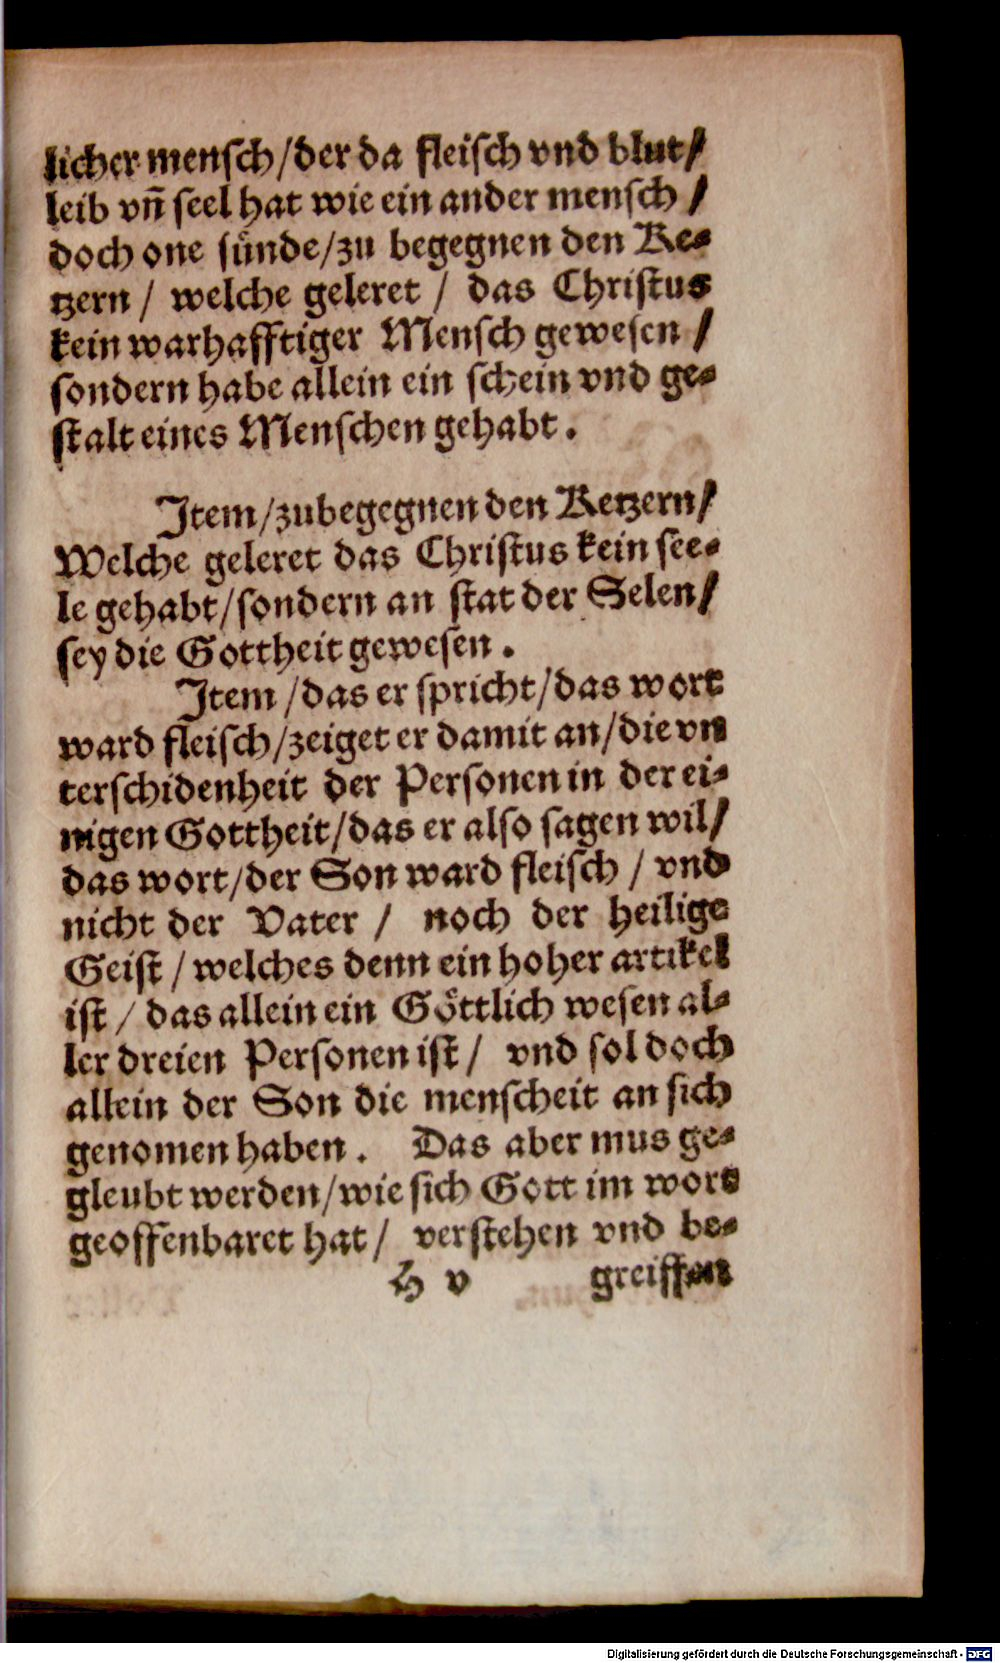 licher mensch/der da fleisch vnd blut/
leib vñ seel hat wie ein ander mensch/
doch one sünde/zu begegnen den Ke-
tzern / welche geleret / das Christus
kein warhafftiger Mensch gewesen /
sondern habe allein ein schein vnd ge-
stalt eines Menschen gehabt.
Item/zubegegnen den Ketzern/
Welche geleret das Christus kein see-
le gehabt/sondern an stat der Selen/
sey die Gottheit gewesen.
Item/das er spricht/das wort
ward fleisch/zeiget er damit an/die vn
terschidenheit der Personen in der ei-
nigen Gottheit/das er also sagen wil/
das wort/der Son ward fleisch / vnd
nicht der Vater / noch der heilige
Geist / welches denn ein hoher artikel
ist / das allein ein Göttlich wesen al-
ler dreien Personen ist / vnd sol doch
allein der Son die menscheit an sich
genomen haben. Das aber mus ge-
gleubt werden/wie sich Gott im wort
geoffenbaret hat / verstehen vnd be-
H v greiffen
Digitalisierung gefördert durch die Deutsche Forschungsgemeinschaft - DFG